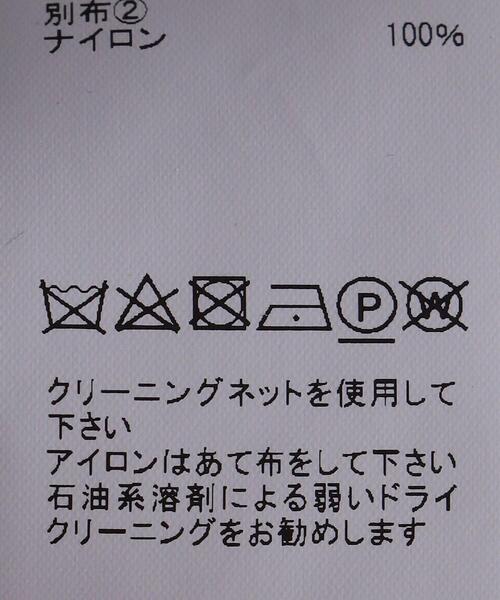 別布②
ナイロン 100%
P W
クリーニングネットを使用して
下さい
アイロンはあて布をして下さい
石油系溶剤による弱いドライ
クリーニングをお勧めします